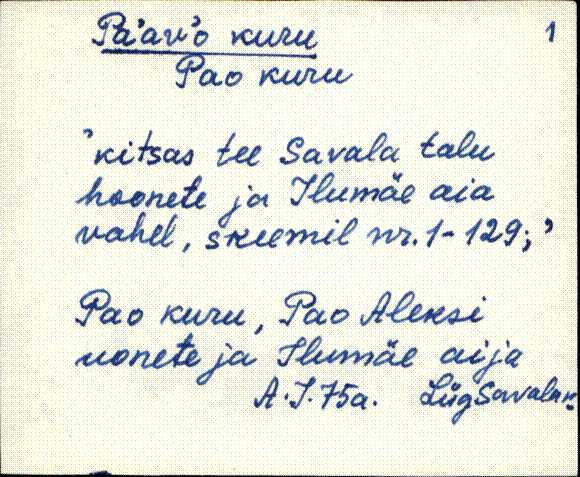 Pa'av'o kuru 1
Pao kuru
"kitsas tee Savala talu
hoonete ja Ilumäe aia
vahel, skeemil nr. 1-129;"
Pao kuru, Pao Aleksi
uonete ja Ilumäe aija
A.I. 75a. Lüg Savala k.